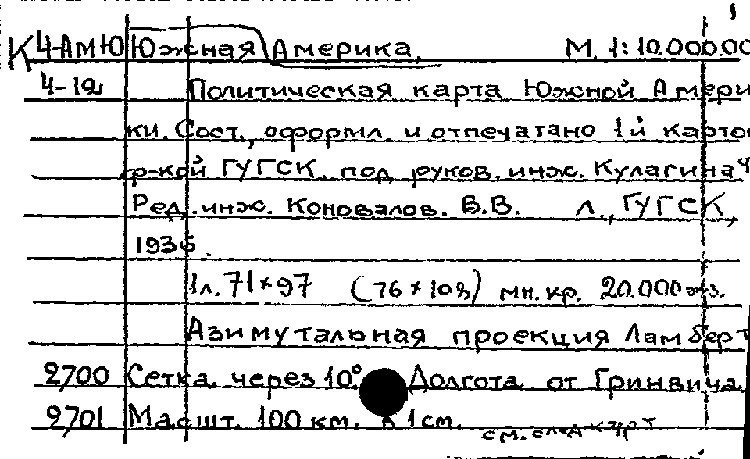 К 4-АмЮ Южная Америка. М. 1:10.000.00
4-19 Политическая карта Южной Амери
ки. Сост., оформл. и отпечатано 1й карто
ф-кой ГУГСК под руков. инж. Кулагина
Ред. инж. Коновалов. В.В. Л., ГУГСК,
1936.
1л. 71×97 (76×108) мн. кр. 20.000 экз.
Азимутальная проекция Ламберт
2700 Сетка через 10° Долгота от Гринвича
2701 Масшт. 100 км. в 1 см.
см. след карт